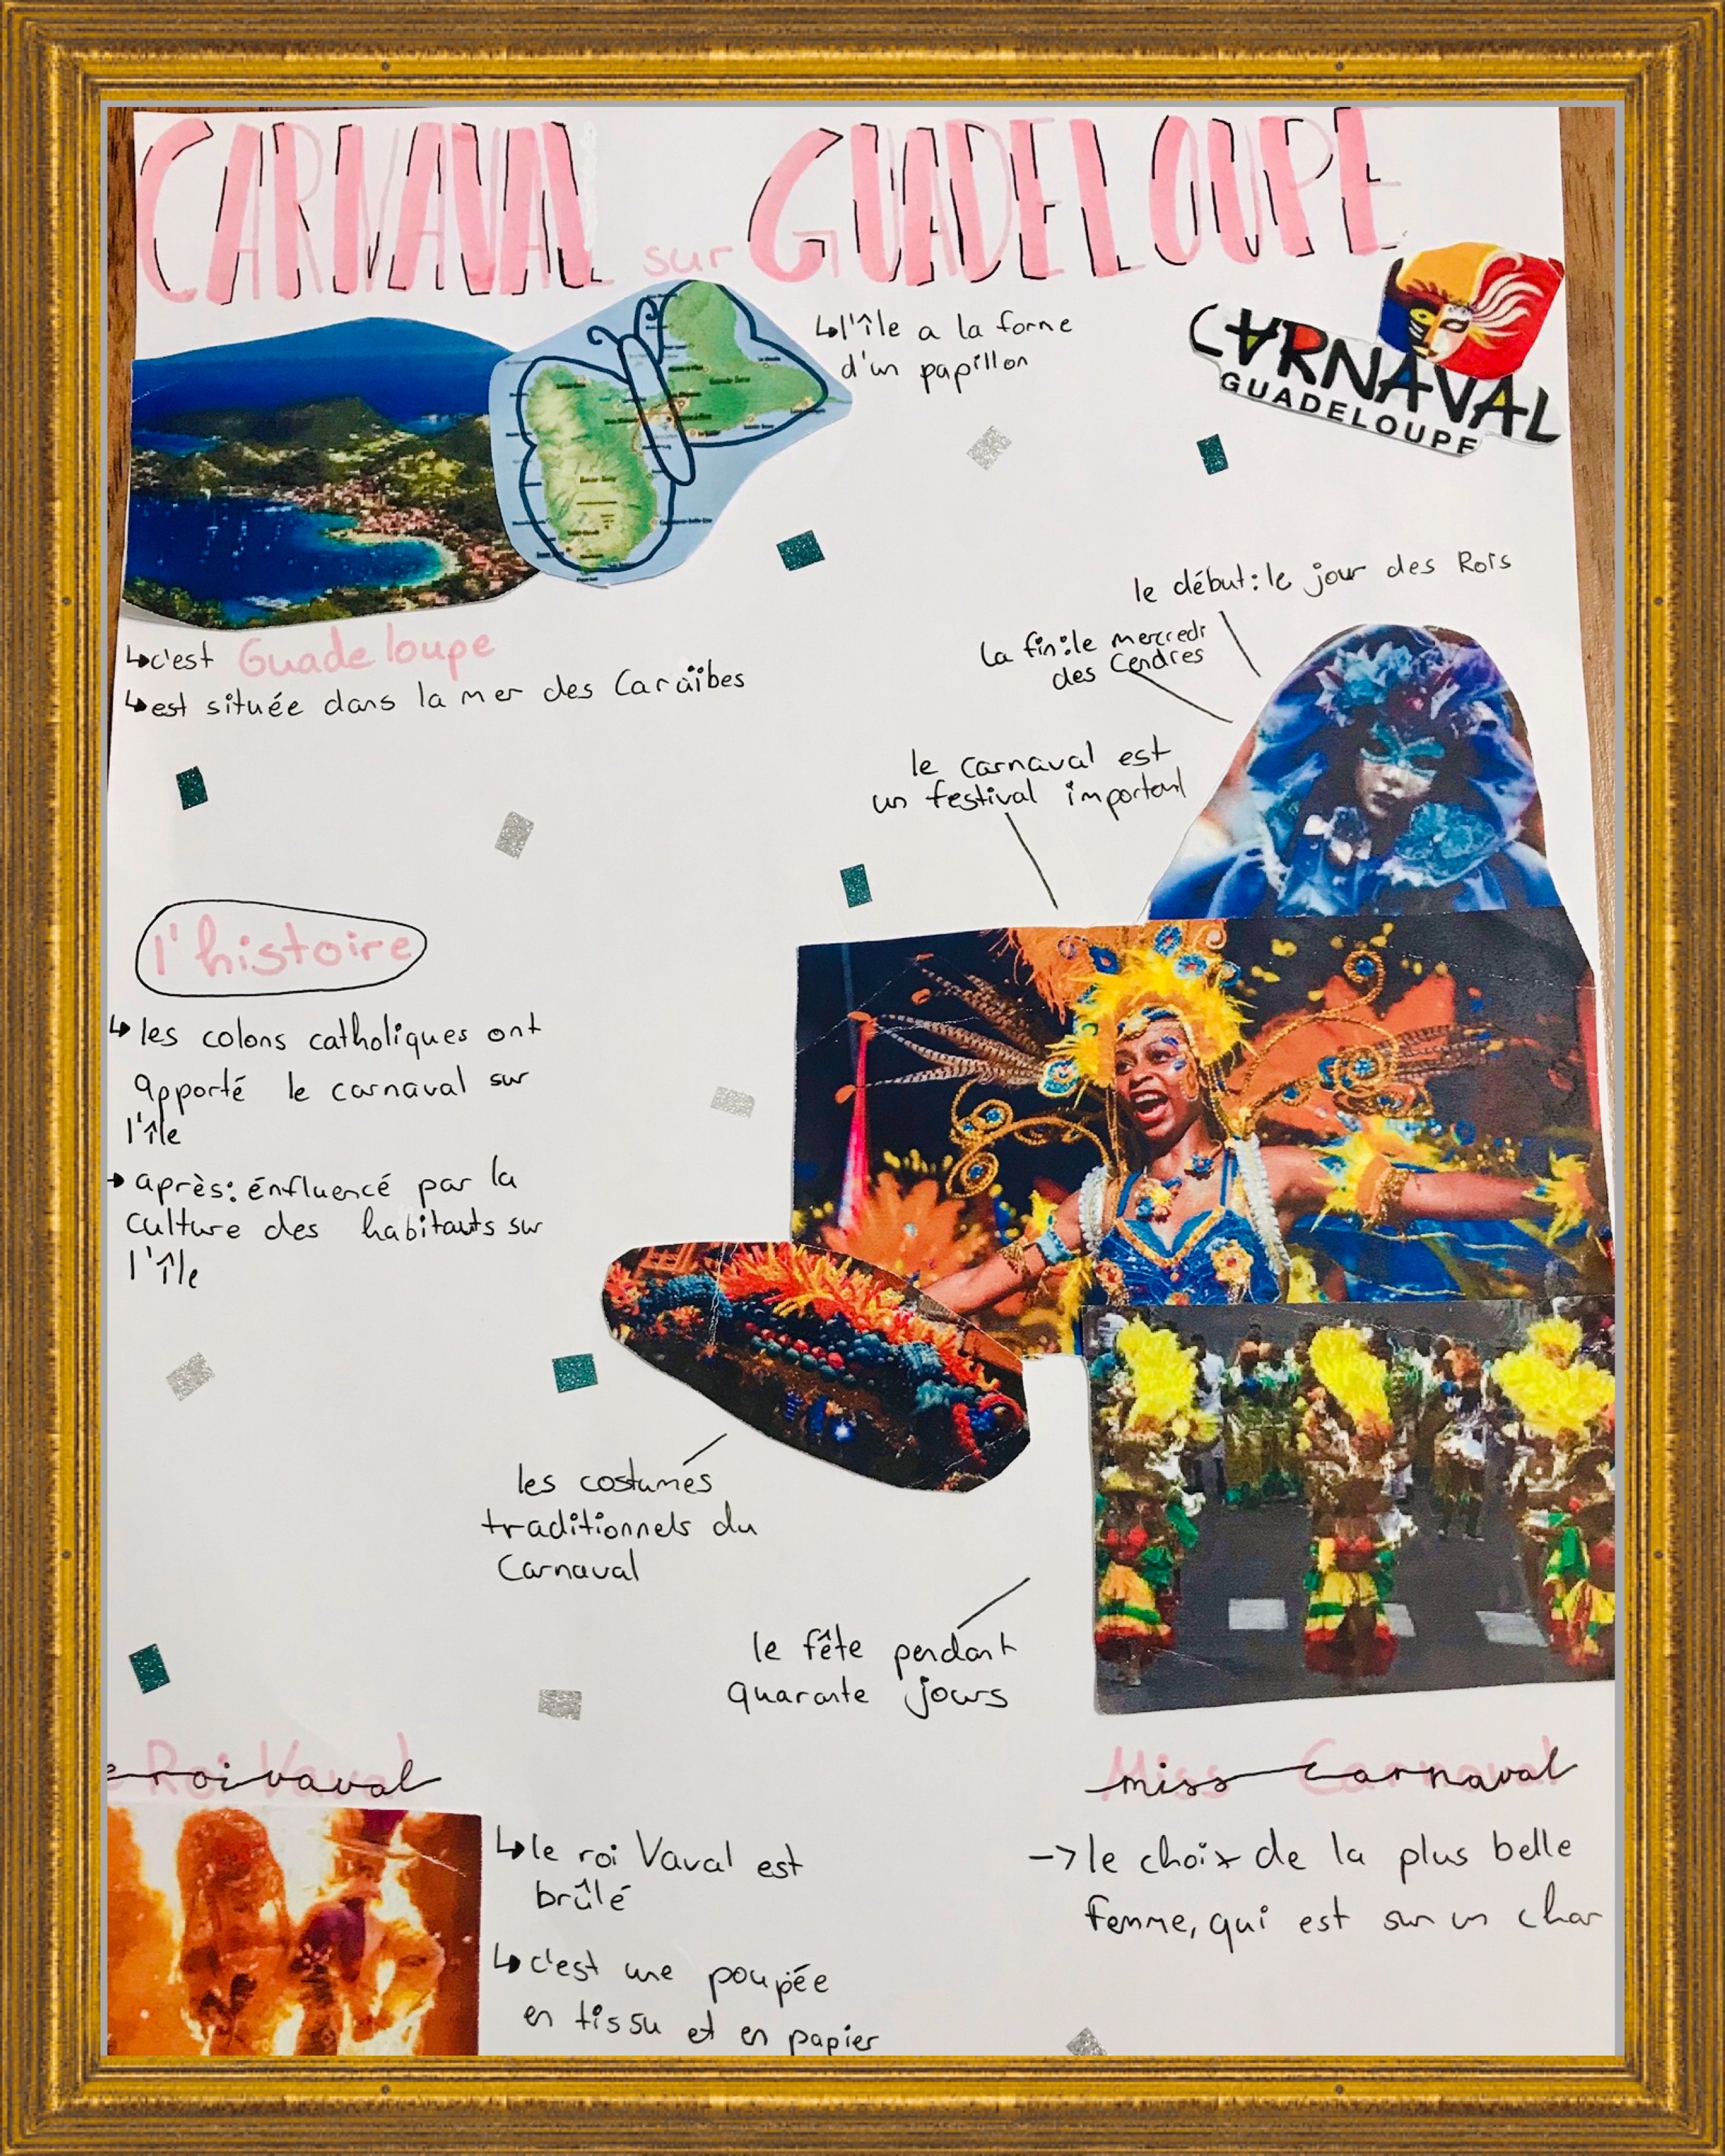 CARNAVAL sur GUADELOUPE
↳l'île a la forme
d'un papillon
CARNAVAL
GUADELOUPE
↳c'est Guadeloupe
↳est située dans la mer des Caraïbes
le début: le jour des Rois
La fin: le mercredi
des Cendres
le carnaval est
un festival important
l'histoire
↳ les colons catholiques ont
apporté le carnaval sur
l'île
→ après: énfluencé par la
culture des habitants sur
l'île
les costumes
traditionnels du
Carnaval
le fête pendant
quarante jours
Roi Vaval
roi vaval
↳le roi Vaval est
brûlé
↳c'est une poupée
en tissu et en papier
Miss Carnaval
miss Carnaval
→ le choix de la plus belle
femme, qui est sur un char